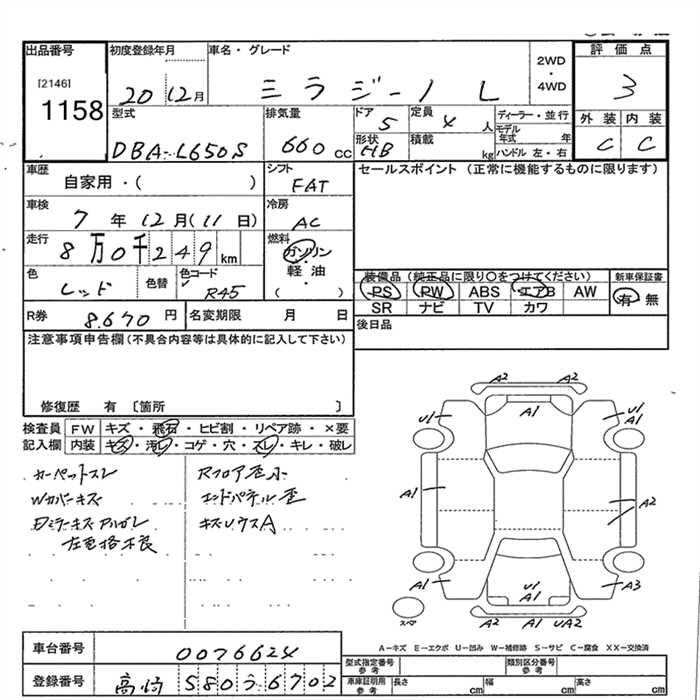 出品番号
[2146]
1158
初度登録年月
20 12月
車名・グレード
ミラジーノ L
2WD
・
4WD
評価点
3
外装 内装
C C
型式
DBA-L650S
排気量
660 cc
ドア
5
定員
4 人
形状
HB
積載
kg
ディーラー・並行
モデル年式 年
ハンドル 左・右
車歴
自家用・( )
シフト
FAT
セールスポイント (正常に機能するものに限ります)
車検
7 年 12月(11日)
冷房
AC
走行
8万0千249 km
燃料
ガソリン
軽油
( )
色
レッド
色替
色コード
R45
装備品 (純正品に限り〇をつけてください)
PS PW ABS エアB AW
SR ナビ TV カワ
新車保証書
有 無
R券
8.670 円
名変期限 月 日
後日品
注意事項申告欄(不具合内容等は具体的に記入して下さい)
修復歴 有 〔箇所 〕
検査員記入欄
FW キズ・飛石・ヒビ割・リペア跡・×要
内装 キズ・汚レ・コゲ・穴・スレ・キレ・破レ
カーペットスレ
Wカバーキズ
Dミラーキズ
Rフロア歪小
エンドパネル歪
キズUウスA
A2 A2
A1
U1
U1
A1
A1
A2
A1
U1
A1
A3
A2 A1 UA2
スペア
A-キズ E-エクボ U-凹み W-補修跡 S-サビ C-腐食 XX-交換済
車台番号
0076624
登録番号
高崎 580う6702
型式指定番号
参考
類別区分番号
参考
車庫証明用
参考
長さ cm
幅 cm
高さ cm